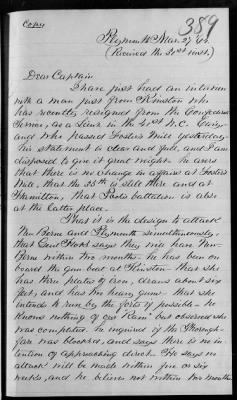 389
Copy
Plymouth Mar. 27 '63
(Received the 30th inst.)
Dear Captain
I have just had an interview
with a man just from Kinston who
has recently resigned from the Confederate
Service, as a Lieut in the 41st N.C. Cavy,
and who passed Fosters Mill yesterday.
His statement is clear and full, and I am
disposed to give it great weight. he avers
that there is no change in affairs at Fosters
Mill, that the 35th is still there and at
Hamilton, that Pools battalion is also
at the latter place.
That it is the design to attack
New Berne and Plymouth simultaneously,
that Genl says they will have New
Berne within two months. he has been on
board the gun boat at Kinston that she
has three plates of iron, draws about six
feet, and has two heavy guns. that she
intends to run by the forts if possible. he
knows nothing of a "Ram" but observed she
was completed. he inquired if the Thorough-
fare was blocked, and says there is no in-
tention of approaching direct. He says no
attack will be made within five or six
weeks, and he believes not within two months